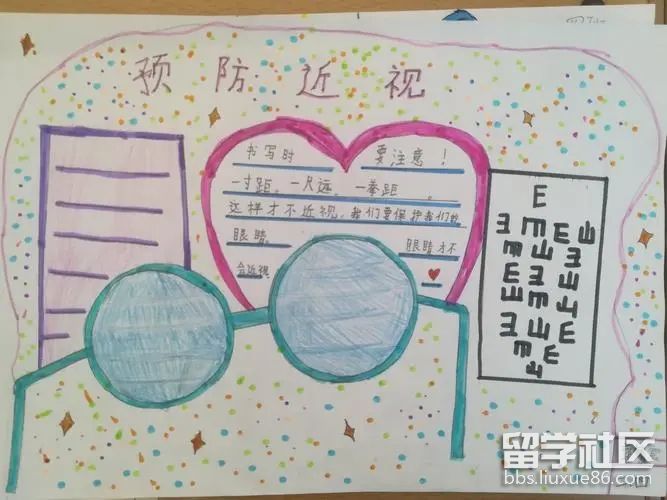 预防近视
书写时 要注意！
一寸距。一尺远。一拳距。
这样才不近视，我们要保护我们的
眼睛。 眼睛才不
会近视
E
留学社区
bbs.liuxue86.com